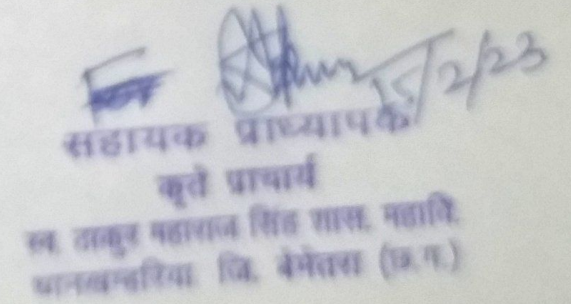 15/2/23
सहायक प्राध्यापक
कृते प्राचार्य
स्व. ठाकुर महाराज सिंह शास. महावि.
थानखम्हरिया जि. बेमेतरा (छ.ग.)